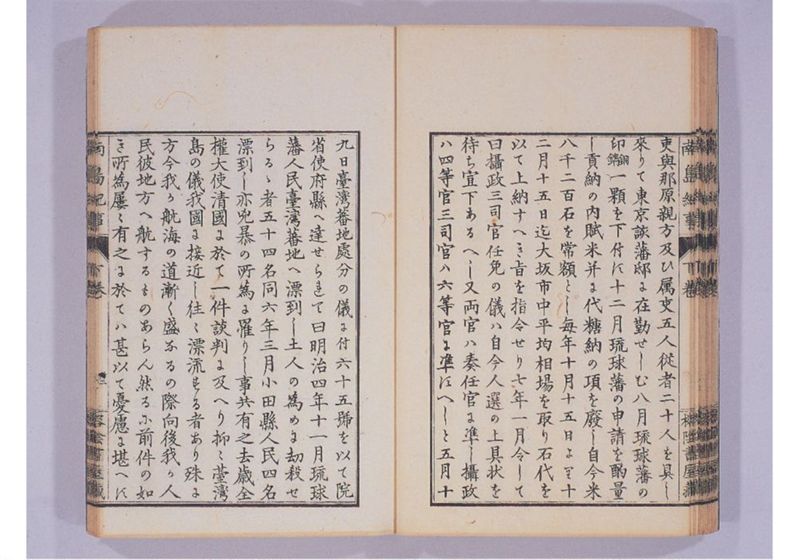 南島紀事 下巻
吏與那原親方及ひ属吏五人從者二十人を具し
來りて東京該藩邸に在勤せしむ八月琉球藩の
印 銅鑄 一顆を下付に十二月琉球藩の申請を酌量
し貢納の内賦米并に代糖納の項を廢し自今米
八千二百石を常額とし毎年十月十五日より十
二月十五日迄大坂市中平均相場を取り石代を
以て上納すへき旨を指令せり七年一月令して
曰攝政三司官任免の儀ハ自今人選の上具状を
待ち宜下あるへし又両官ハ奏任官に準し攝政
ハ四等官三司官ハ六等官に準にへしと五月十
九日臺灣蕃地處分の儀に付六十五號を以て院
省使府縣へ達せらまて曰明治四年十一月琉球
藩人民臺灣蕃地へ漂到し土人の為めに劫殺せ
らるゝ者五十四名同六年三月小田縣人民四名
漂到し亦兇暴の所為に罹りし事共有之去歳全
權大使清國に於て一件談判に及へり抑ゝ臺灣
島の儀我國に接近し往ゝ漂流する者あり殊に
方今我か航海の道漸く盛なるの際向後我か人
民彼地方へ航するものあらん然るに前件の如
き所為屢ゝ有之に於てハ甚以て憂慮に堪へに
南島紀事 下巻